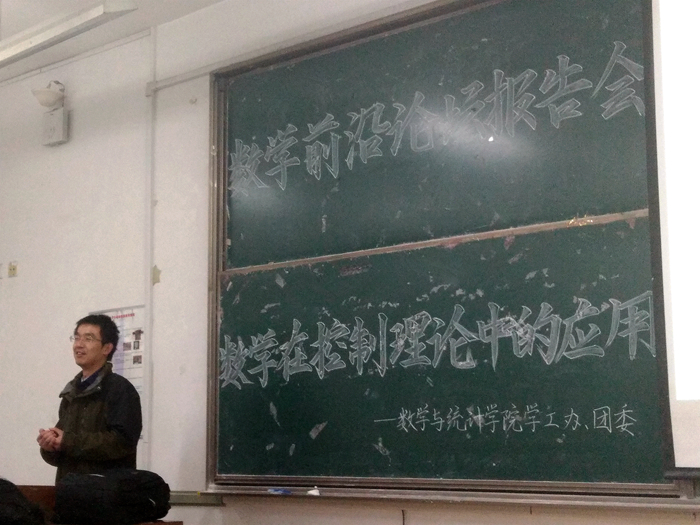 数学前沿论坛报告会
数学在控制理论中的应用
—数学与统计学院学工办、团委